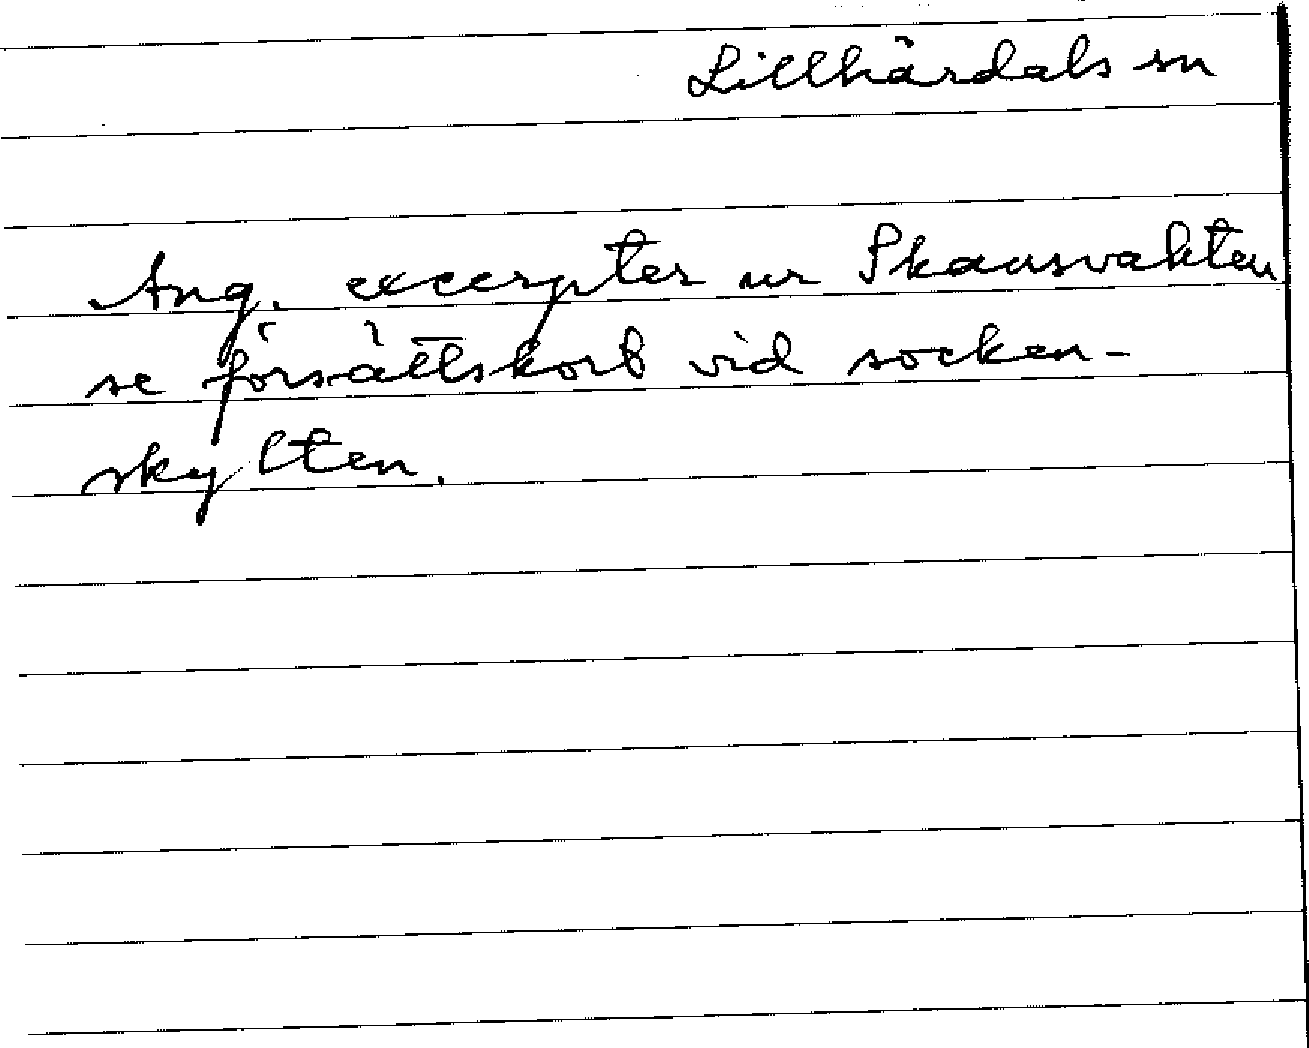 Lillhärdals sn
Ang. excerpter ur Skansvakten
se försättskort vid socken-
skylten.